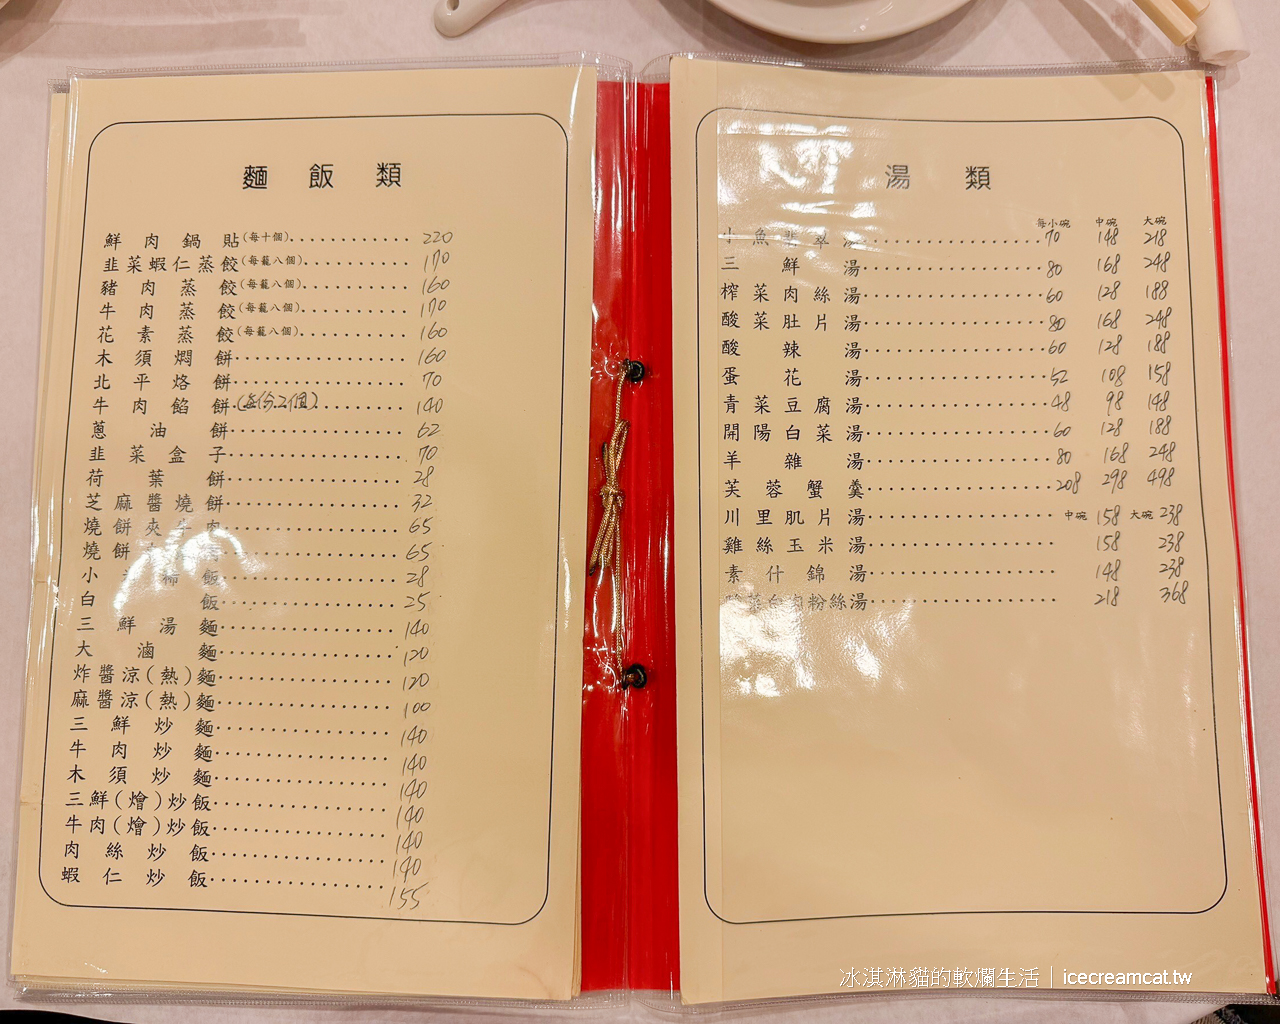 麵飯類
鮮肉鍋貼(每十個) 220
韭菜蝦仁蒸餃(每籠八個) 170
豬肉蒸餃(每籠八個) 160
牛肉蒸餃(每籠八個) 170
花素蒸餃(每籠八個) 160
木須燜餅 160
北平烙餅 70
牛肉餡餅(每份2個) 140
蔥油餅 62
韭菜盒子 70
荷葉餅 28
芝麻醬燒餅 32
燒餅夾牛肉 65
燒餅 肉 65
小 稀飯 28
白飯 25
三鮮湯麵 140
大滷麵 120
炸醬涼(熱)麵 120
麻醬涼(熱)麵 100
三鮮炒麵 140
牛肉炒麵 140
木須炒麵 140
三鮮(燴)炒飯 140
牛肉(燴)炒飯 140
肉絲炒飯 140
蝦仁炒飯 155
湯類
每小碗 中碗 大碗
小魚 湯 70 148 218
三鮮湯 80 168 248
榨菜肉絲湯 60 128 188
酸菜肚片湯 80 168 248
酸辣湯 60 128 188
蛋花湯 52 108 158
青菜豆腐湯 48 98 148
開陽白菜湯 60 128 188
羊雜湯 80 168 248
芙蓉蟹羹 208 298 498
川里肌片湯 中碗 158 大碗 238
雞絲玉米湯 158 238
素什錦湯 148 238
菜白肉粉絲湯 218 368
冰淇淋貓的軟爛生活｜icecreamcat.tw